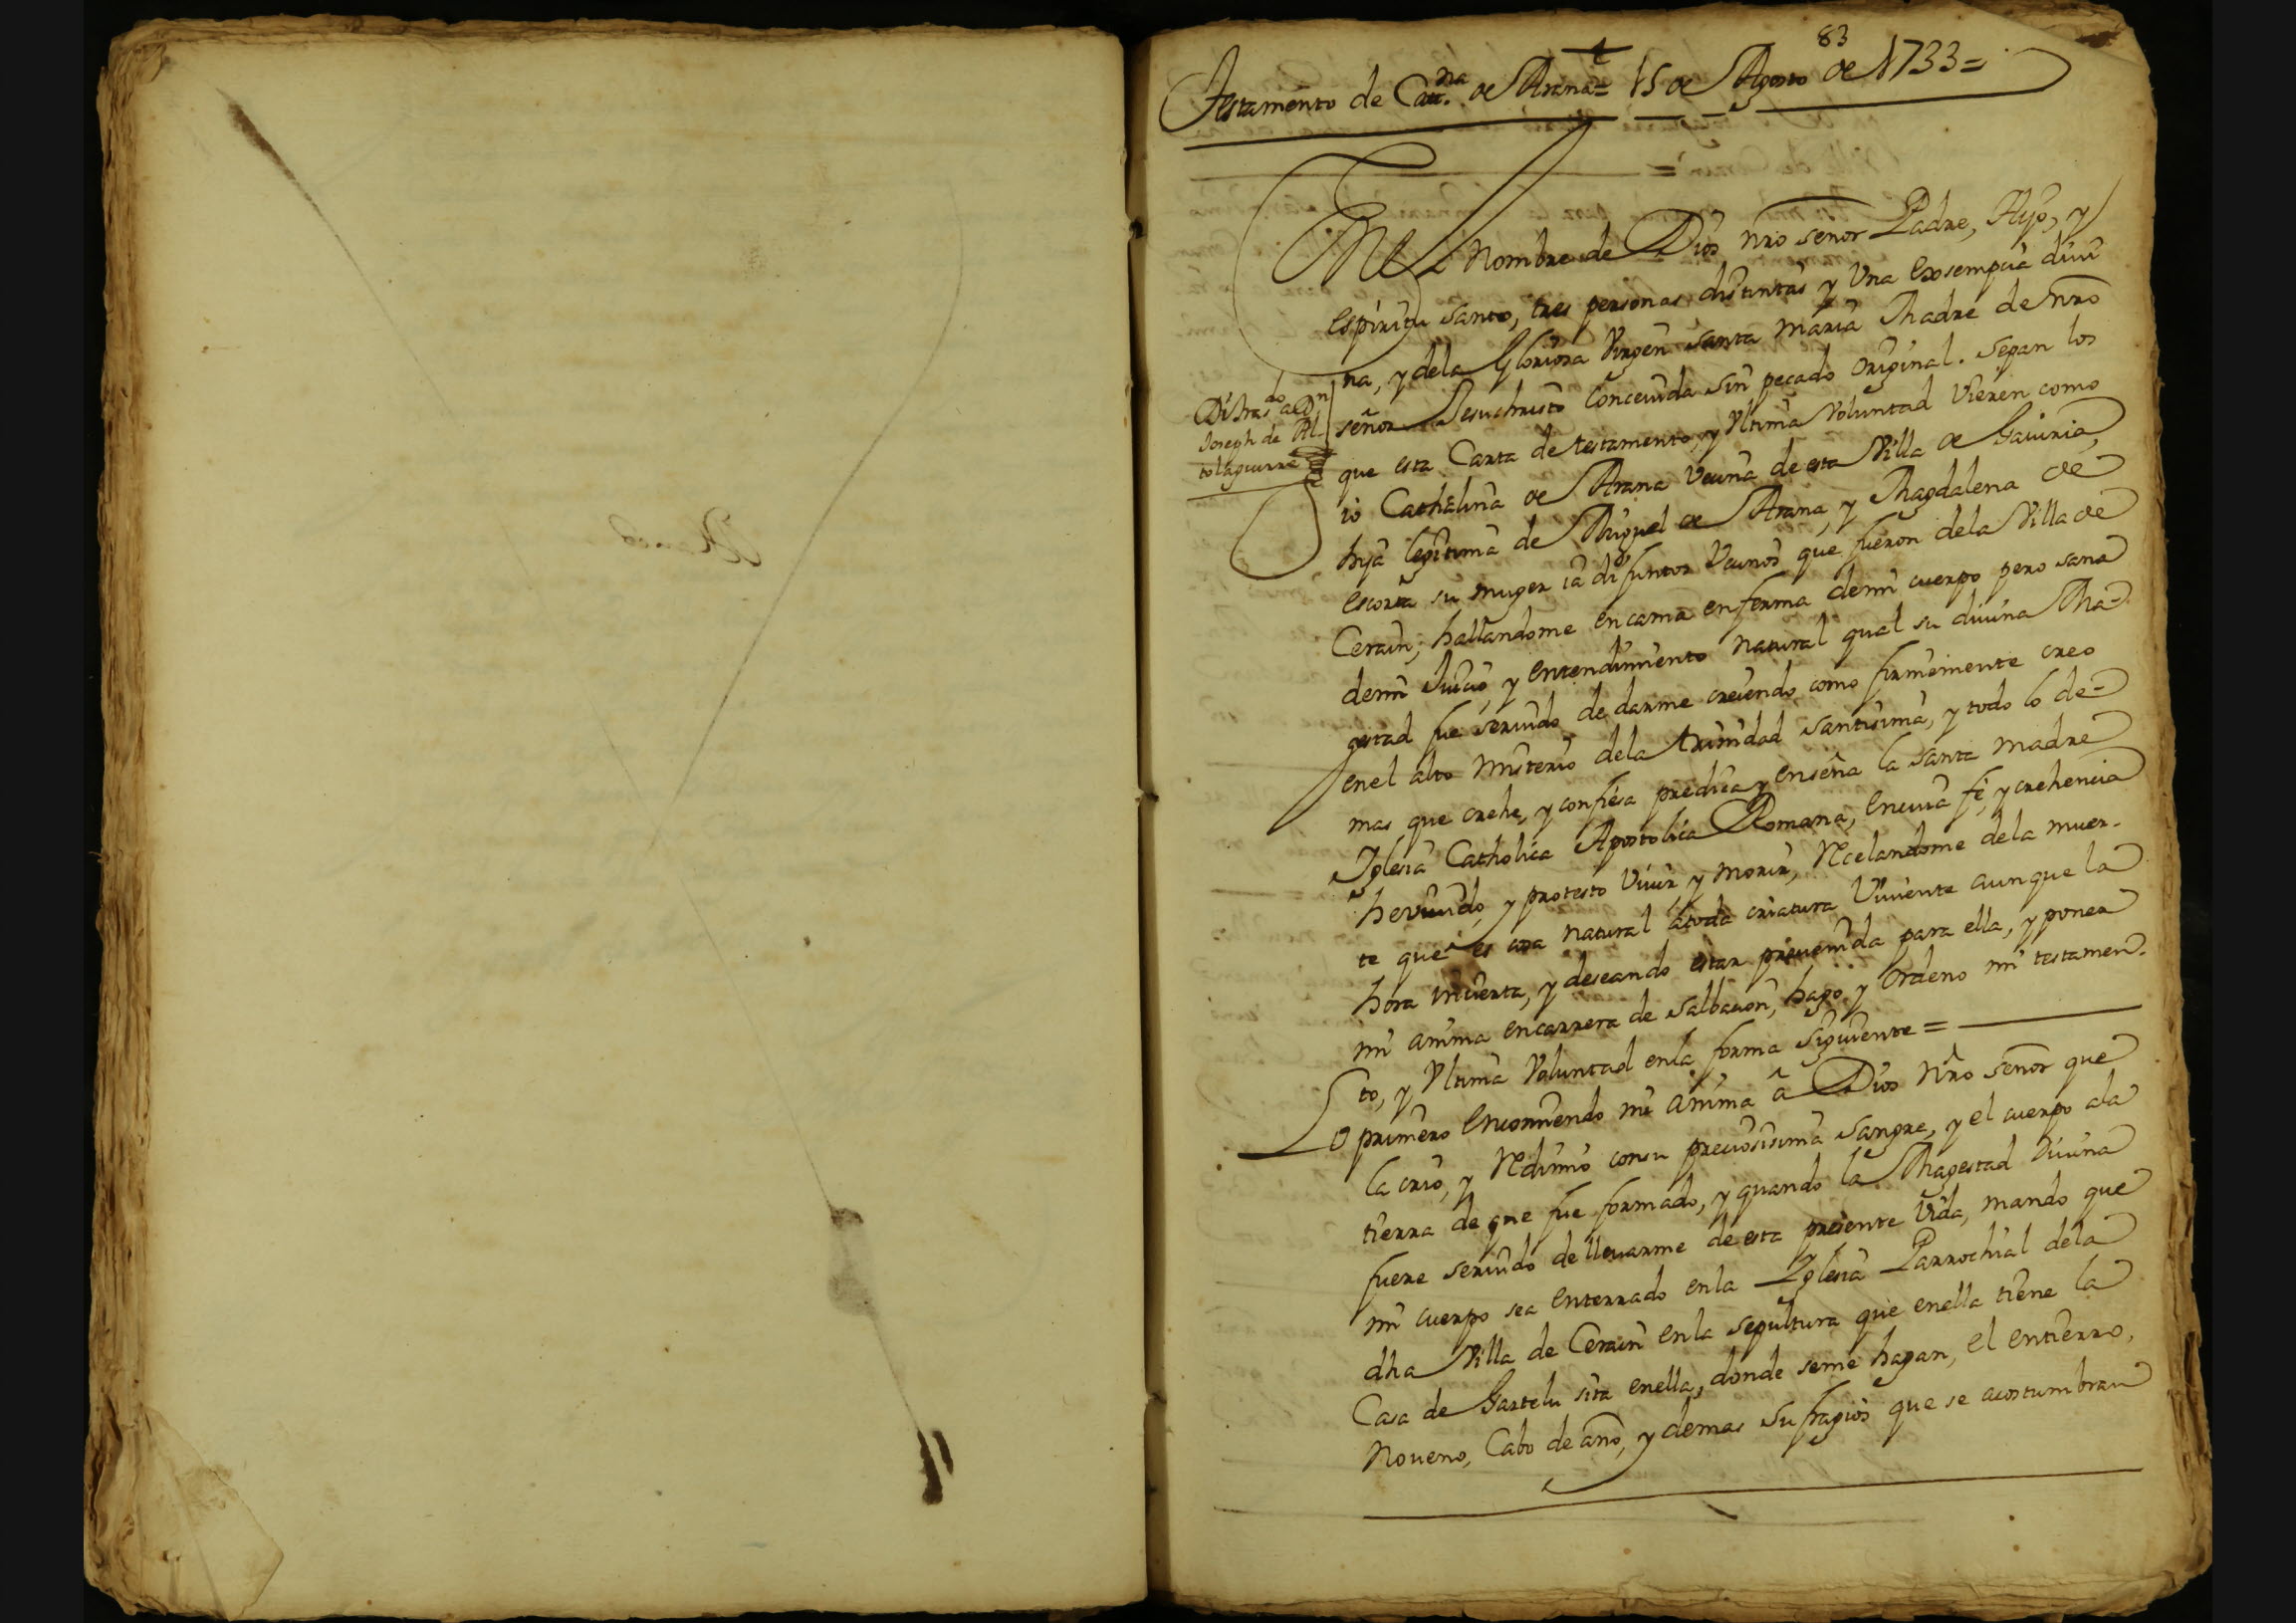 83
Testamento de Cat.na de Arana = 15 de Agosto de 1733 =
En el Nombre de Dios nro señor Padre, Hijo, y
espiritu santo, tres personas distintas y Una esencia divi
na, y dela Gloriosa Virgen santa maria Madre de nro
señor Jesuchristo Conceuida sin pecado original. Sepan los
que esta Carta de testamento, y Ultima Voluntad Vieren como
io Cathalina de Arana Vecina de esta Villa de Gauiria,
hija legitima de Miguel de Arana, y Magdalena de
escorta su muger ia difuntos Vecinos que fueron dela Villa de
Cerain; hallandome en cama enferma demi cuerpo pero sana
demi Juicio, y entendimiento natural qual su diuina Ma-
gestad fue seruido de darme creiendo como firmemente creo
enel alto misterio dela trinidad santisima, y todo lo de-
mas que crehe, y confiesa predica y enseña la santa madre
Iglesia Catholica Apostolica Romana, en cuia fe, y crehencia
he viuido, y protesto Viuir, y morir, Rcelandome dela muer-
te que es cosa natural atoda criatura Viuiente aunque la
hora incierta, y deseando estar preuenida para ella, y poner
mi anima encarrera de salbacion, hago, y ordeno mi testamen-
to, y Ultima Voluntad enla forma siguiente =
Lo primero encomiendo mi anima â Dios Nro señor que
la crio, y Redimio consu preciosisima sangre, y el cuerpo ala
tierra de que fue formado, y quando la Magestad diuina
fuere seruido de lleuarme de esta presente Vida, mando que
mi cuerpo sea enterrado enla Iglesia Parrochial dela
dha Villa de Cerain enla sepultura que enella tiene la
Casa de Gartelu sita enella, donde seme hagan, el entierro,
Noueno, Cabo de año, y demas sufragios que se acostumbran
Di tras.do a D.n
Joseph de Al-
tolaguirre